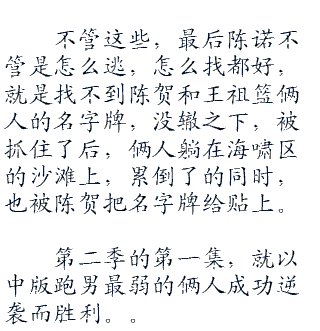 不管这些，最后陈诺不
管是怎么逃，怎么找都好，
就是找不到陈贺和王祖篮俩
人的名字牌，没辙之下，被
抓住了后，俩人躺在海啸区
的沙滩上，累倒了的同时，
也被陈贺把名字牌给贴上。
第二季的第一集，就以
中版跑男最弱的俩人成功逆
袭而胜利。。